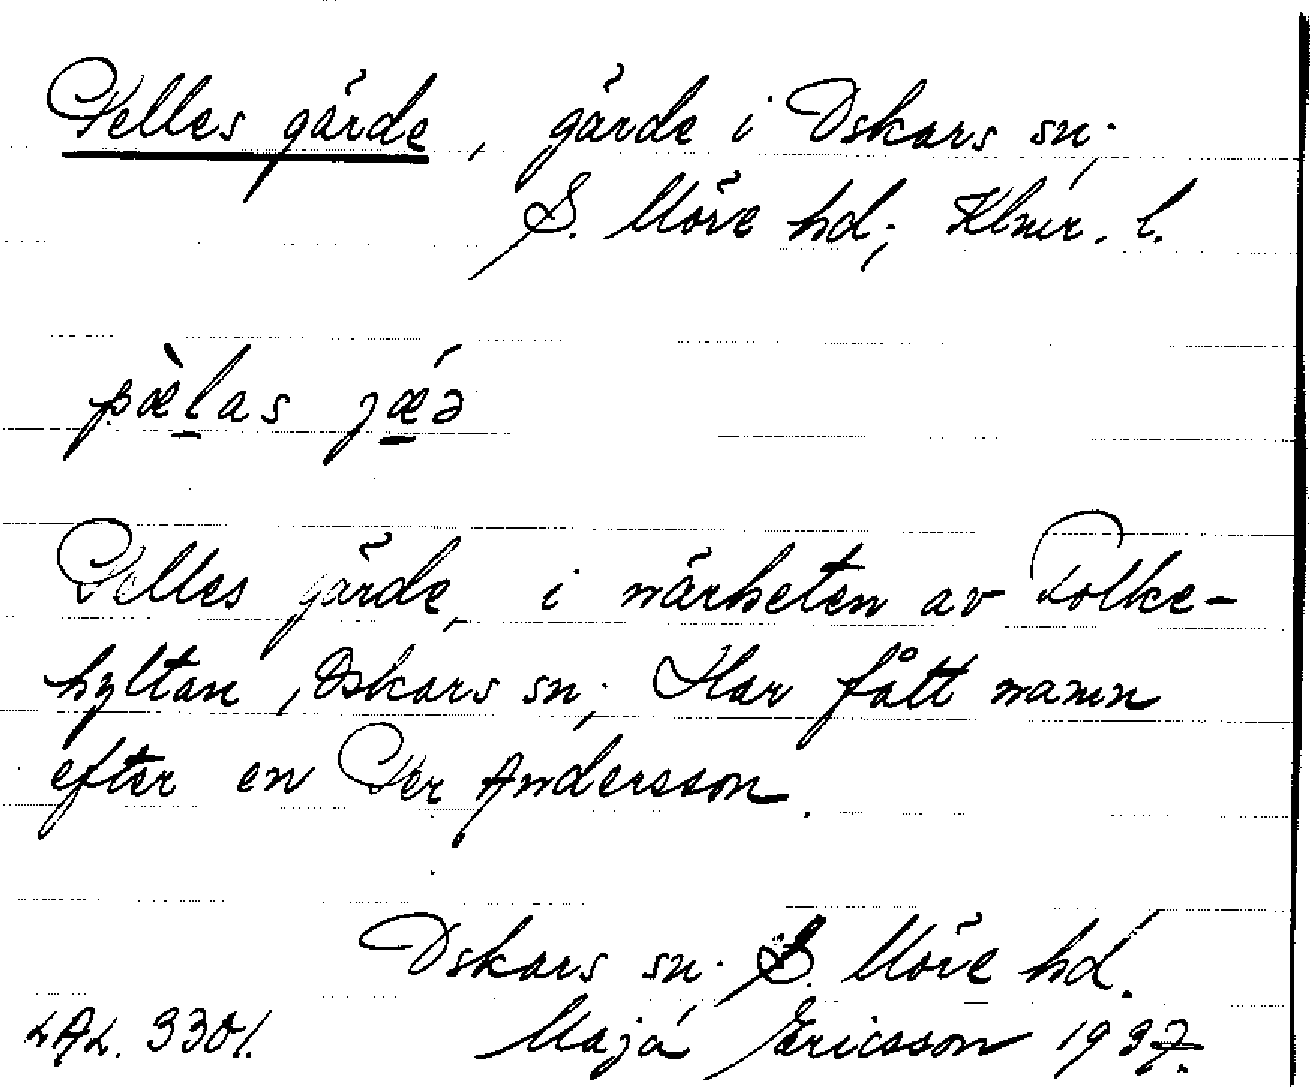 Pelles gärde, gärde i Oskars sn,
S. Möre hd; Klmr. l.
pæ̀las jǽə
Pelles gärde, i närheten av Folke-
hyltan, Oskars sn; Har fått namn
efter en Per Andersson.
Oskars sn. S. Möre hd.
LAL. 3301. Maja Ericsson 1937.